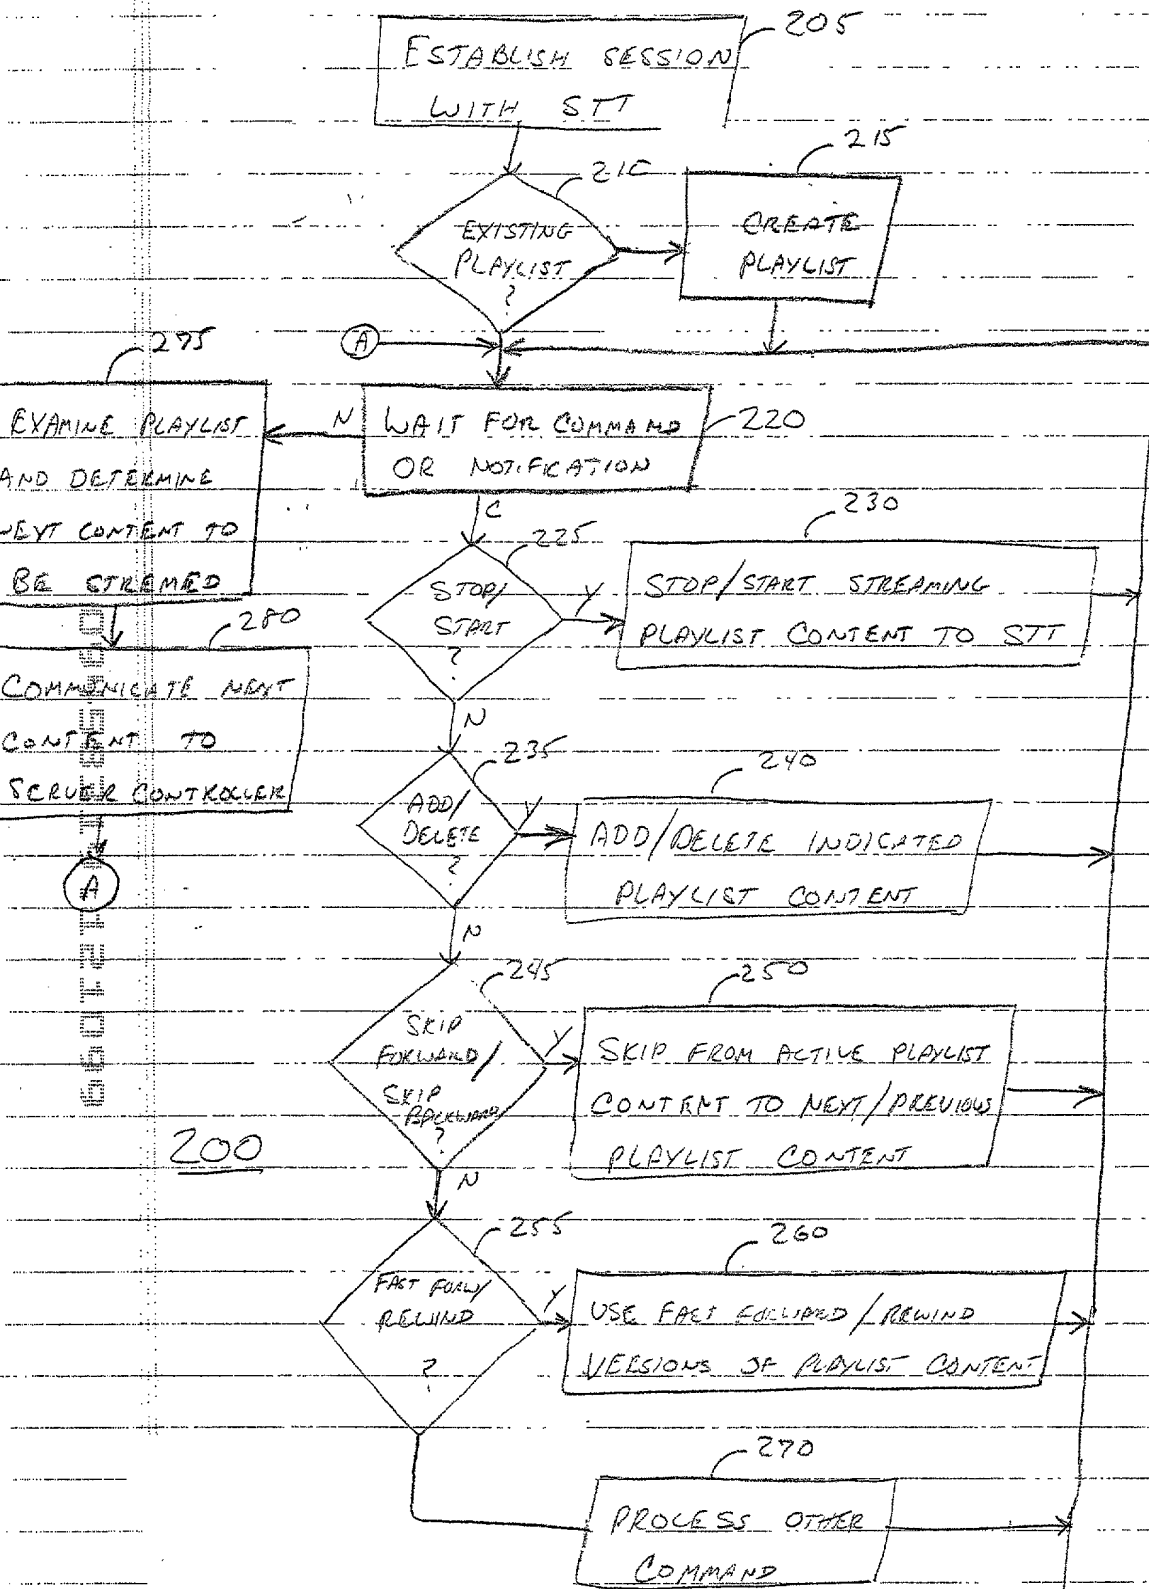 205
ESTABLISH SESSION
WITH STT
210
215
EXISTING
PLAYLIST
?
CREATE
PLAYLIST
A
275
EXAMINE PLAYLIST
AND DETERMINE
NEXT CONTENT TO
BE STREMED
N
WAIT FOR COMMAND
OR NOTIFICATION
220
C
225
230
STOP/
START
?
Y
STOP/START STREAMING
PLAYLIST CONTENT TO STT
280
COMMUNICATE NEXT
CONTENT TO
SERVER CONTROLLER
A
N
235
240
ADD/
DELETE
?
Y
ADD/DELETE INDICATED
PLAYLIST CONTENT
N
245
250
SKIP
FORWARD/
SKIP
BACKWARD
?
Y
SKIP FROM ACTIVE PLAYLIST
CONTENT TO NEXT/PREVIOUS
PLAYLIST CONTENT
200
N
255
260
FAST FORW/
REWIND
?
Y
USE FAST FORWARD/REWIND
VERSIONS OF PLAYLIST CONTENT
270
PROCESS OTHER
COMMAND